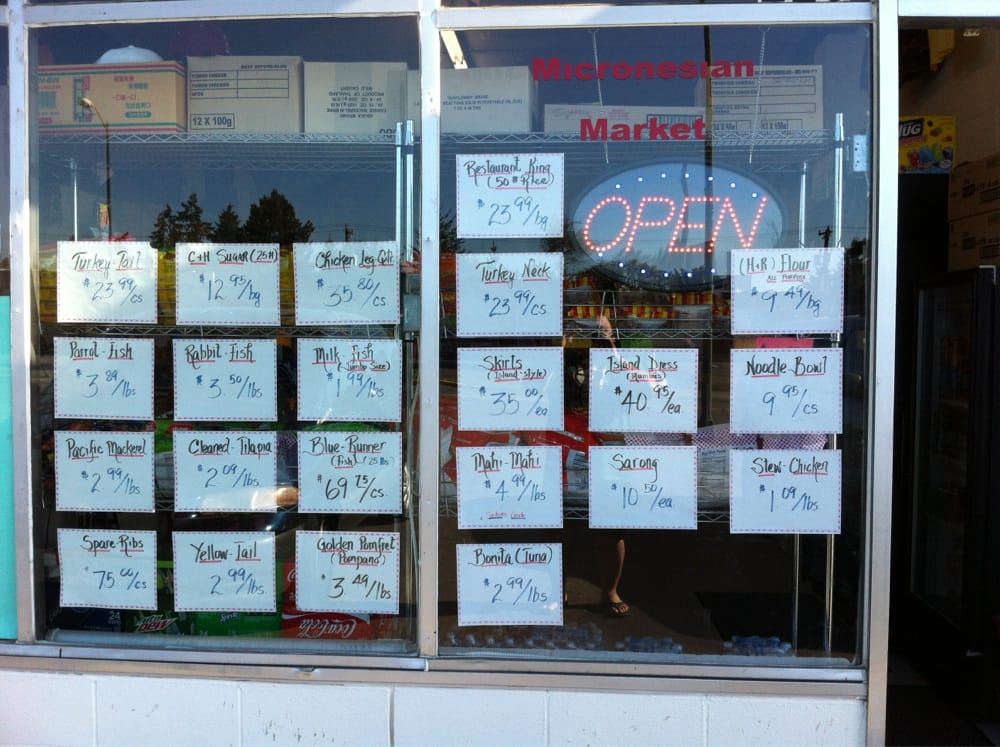 Micronesian
Market
OPEN
12 X 100g
Restaurant King
(50# Rice)
$23.99/bg
Turkey-Tail
$23.99/cs
C+H Sugar (25#)
$12.95/bg
Chicken Leg Qtr
$35.80/cs
Turkey Neck
$23.99/cs
(H+R) Flour
ALL PURPOSE
$9.49/bg
Parrot-fish
$3.89/lbs
Rabbit-Fish
$3.50/lbs
Milk-Fish
(Jumbo Size)
$1.99/lbs
Skirts
(Island-style)
$35.00/ea
Island Dress
$40.95/ea
Noodle-Bowl
9.95/cs
Pacific Mackerel
$2.99/lbs
Cleaned-Tilapia
$2.09/lbs
Blue-Runner
(Fish) (25 lbs)
$69.75/cs
Mahi-Mahi
$4.99/lbs
Sarong
$10.50/ea
Stew-Chicken
$1.09/lbs
Spare-Ribs
$75.00/cs
Yellow-Tail
$2.99/lbs
Golden Pomfret
(Pompano)
$3.49/lbs
Bonita (Tuna)
$2.99/lbs
Coca-Cola
Sprite
24